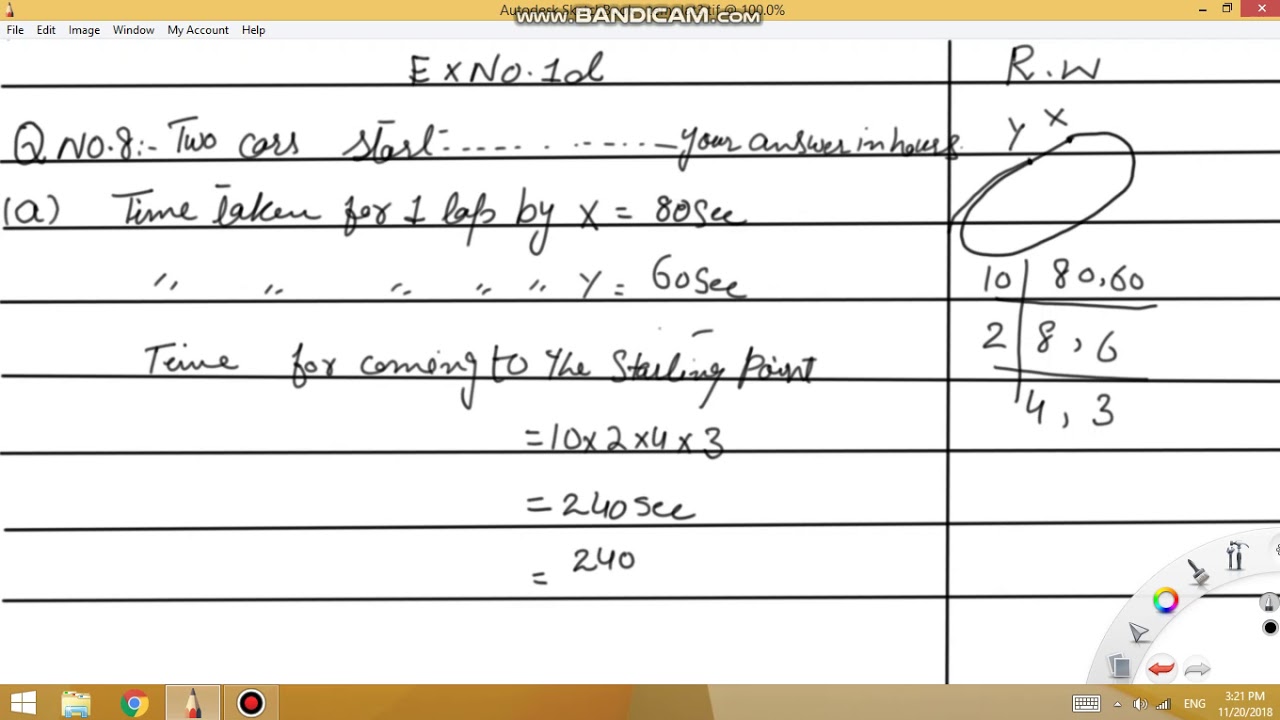 www.BANDICAM.com
File Edit Image Window My Account Help
Ex No. 1d
R.W
Q NO.8:- Two cars start- - - - - - - - - - your answer in hours.
Y X
(a) Time taken for 1 lap by X = 80 Sec
" " " " " Y = 60 Sec
10 | 80, 60
2 | 8, 6
4, 3
Time for coming to the Starting Point
= 10 x 2 x 4 x 3
= 240 Sec
= 240
ENG
3:21 PM
11/20/2018